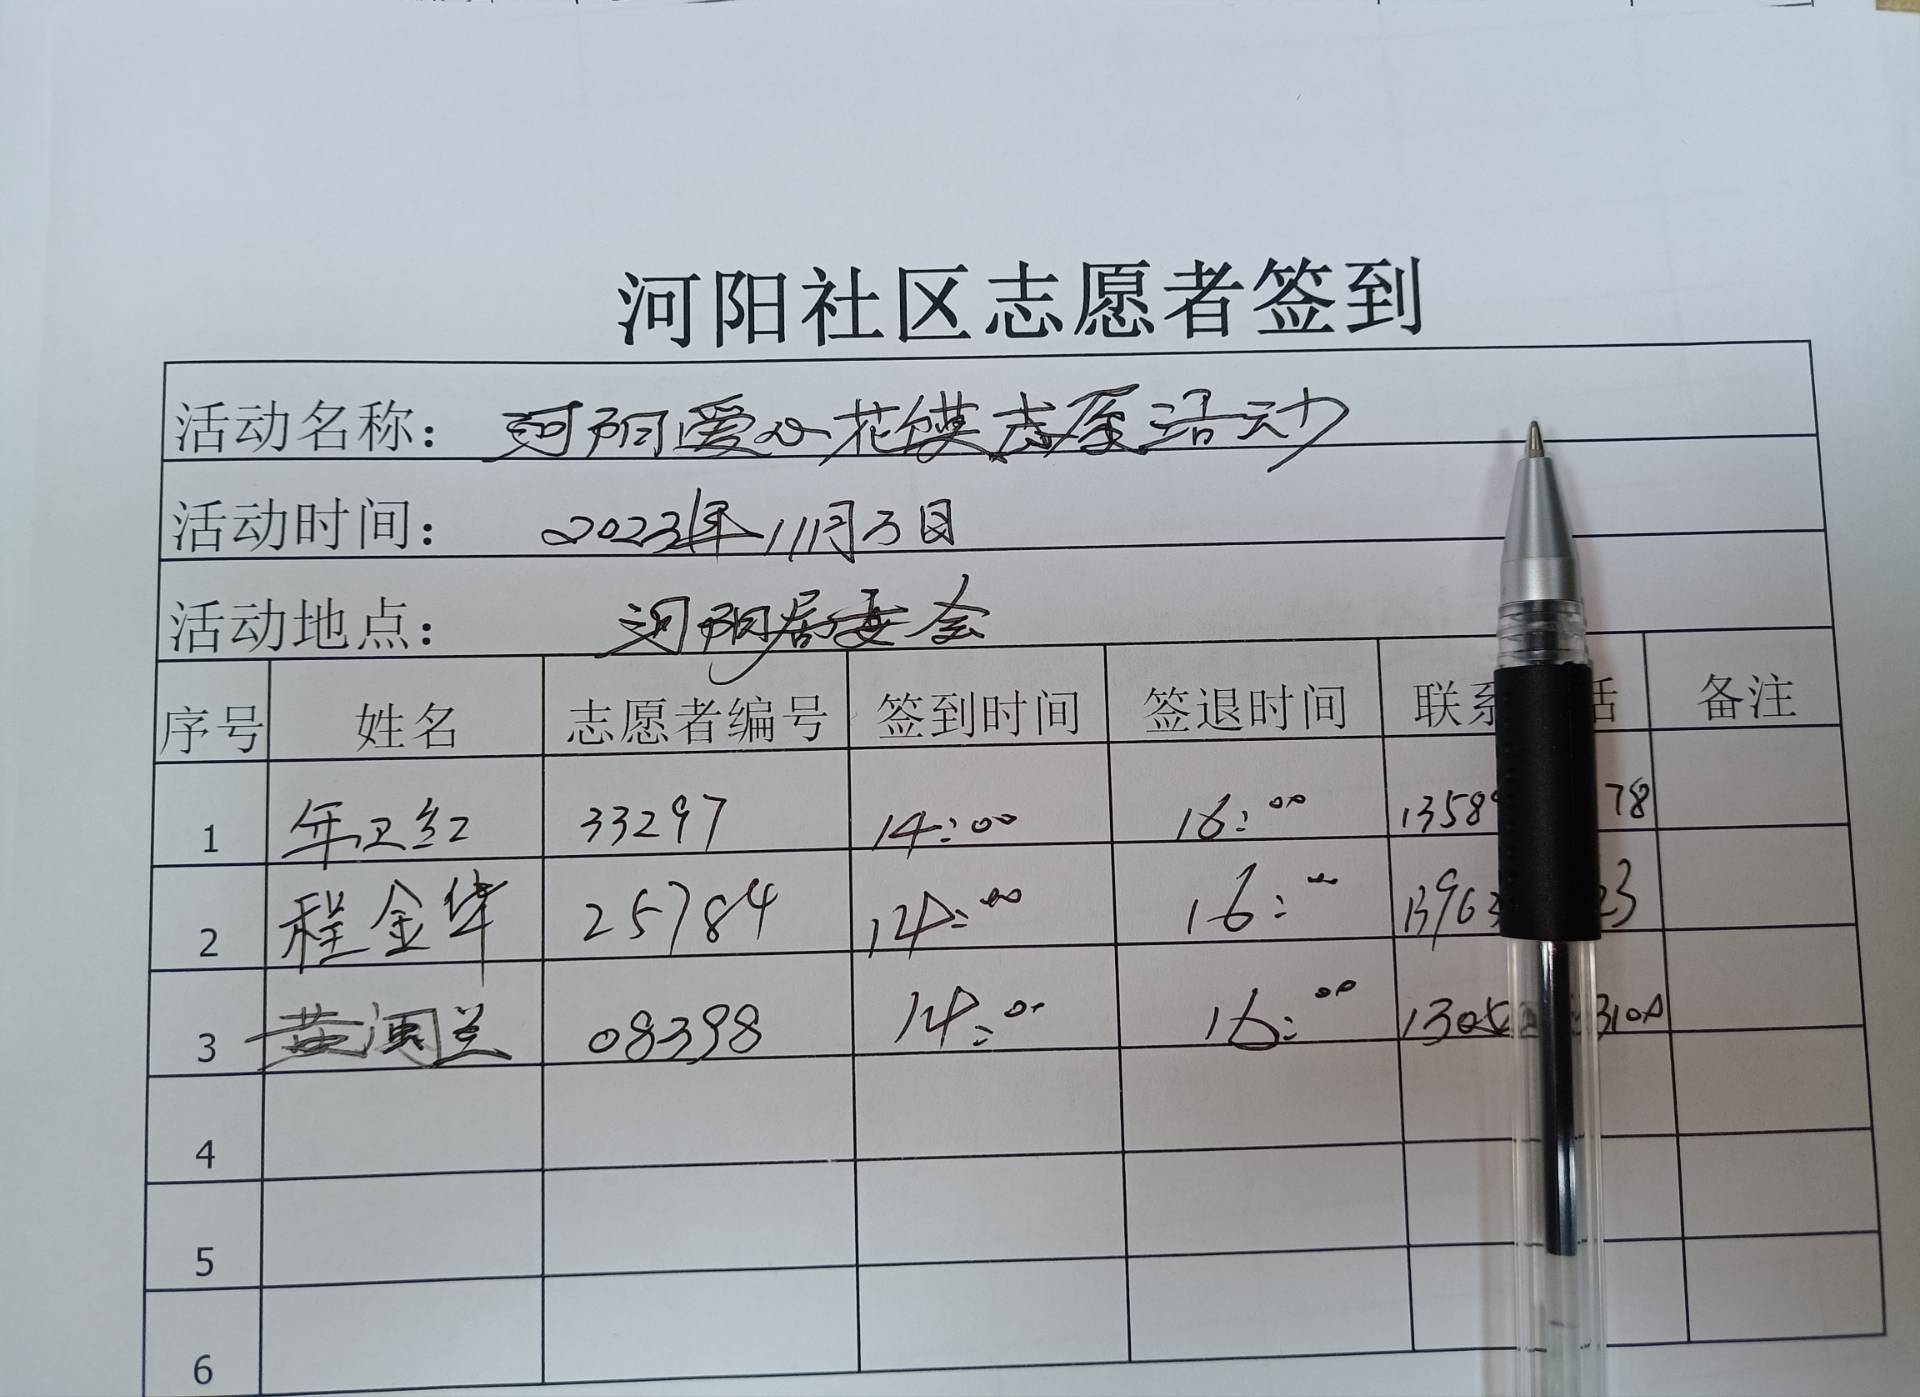 河阳社区志愿者签到
活动名称： 河阳爱心花馍志愿活动
活动时间： 2023年11月3日
活动地点： 河阳居委会
序号 姓名 志愿者编号 签到时间 签退时间 联系 话 备注
1 年卫红 33297 14:00 16:00 1358 78
2 程金华 25784 14:00 16:00 1396 23
3 黄润兰 08398 14:00 16:00 1305 310
4
5
6